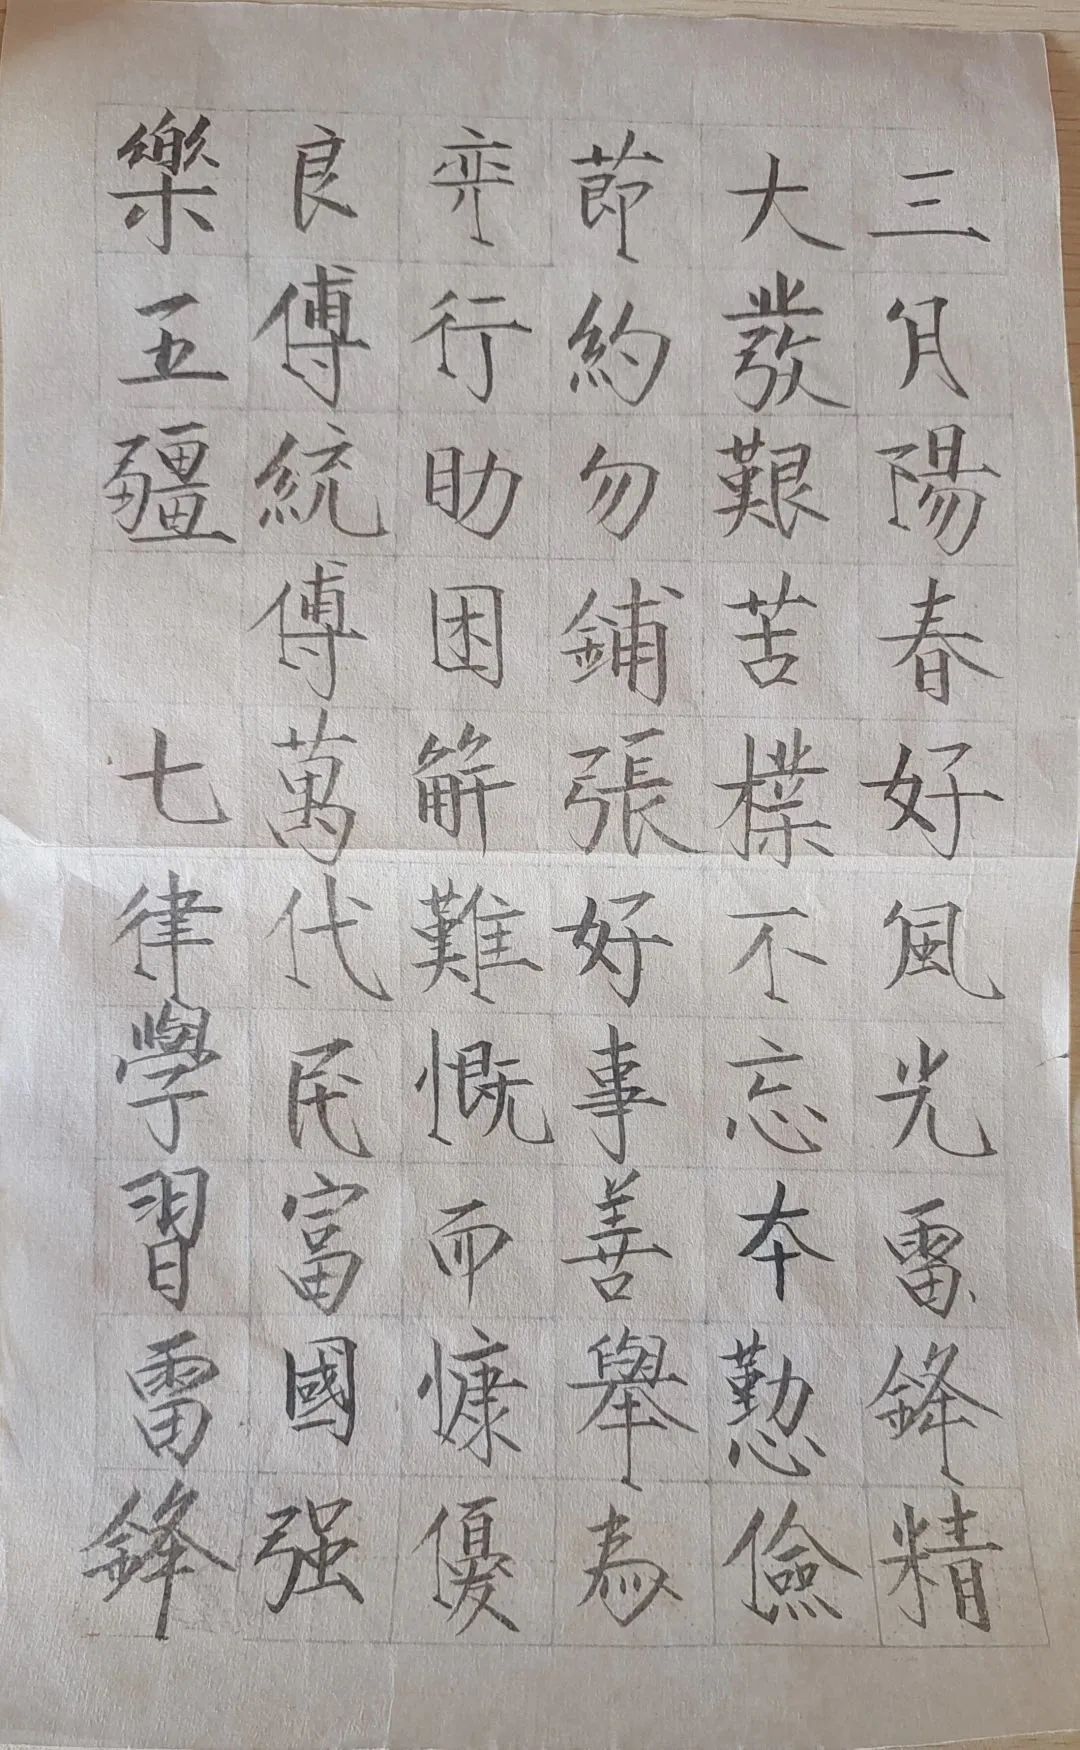 三月陽春好風光雷鋒精
大發艱苦樸不忘本懃儉
節約勿鋪張好事善舉為
弈行助困解難慨而慷優
良傳統傳萬代民富國强
樂五疆 七律學習雷鋒